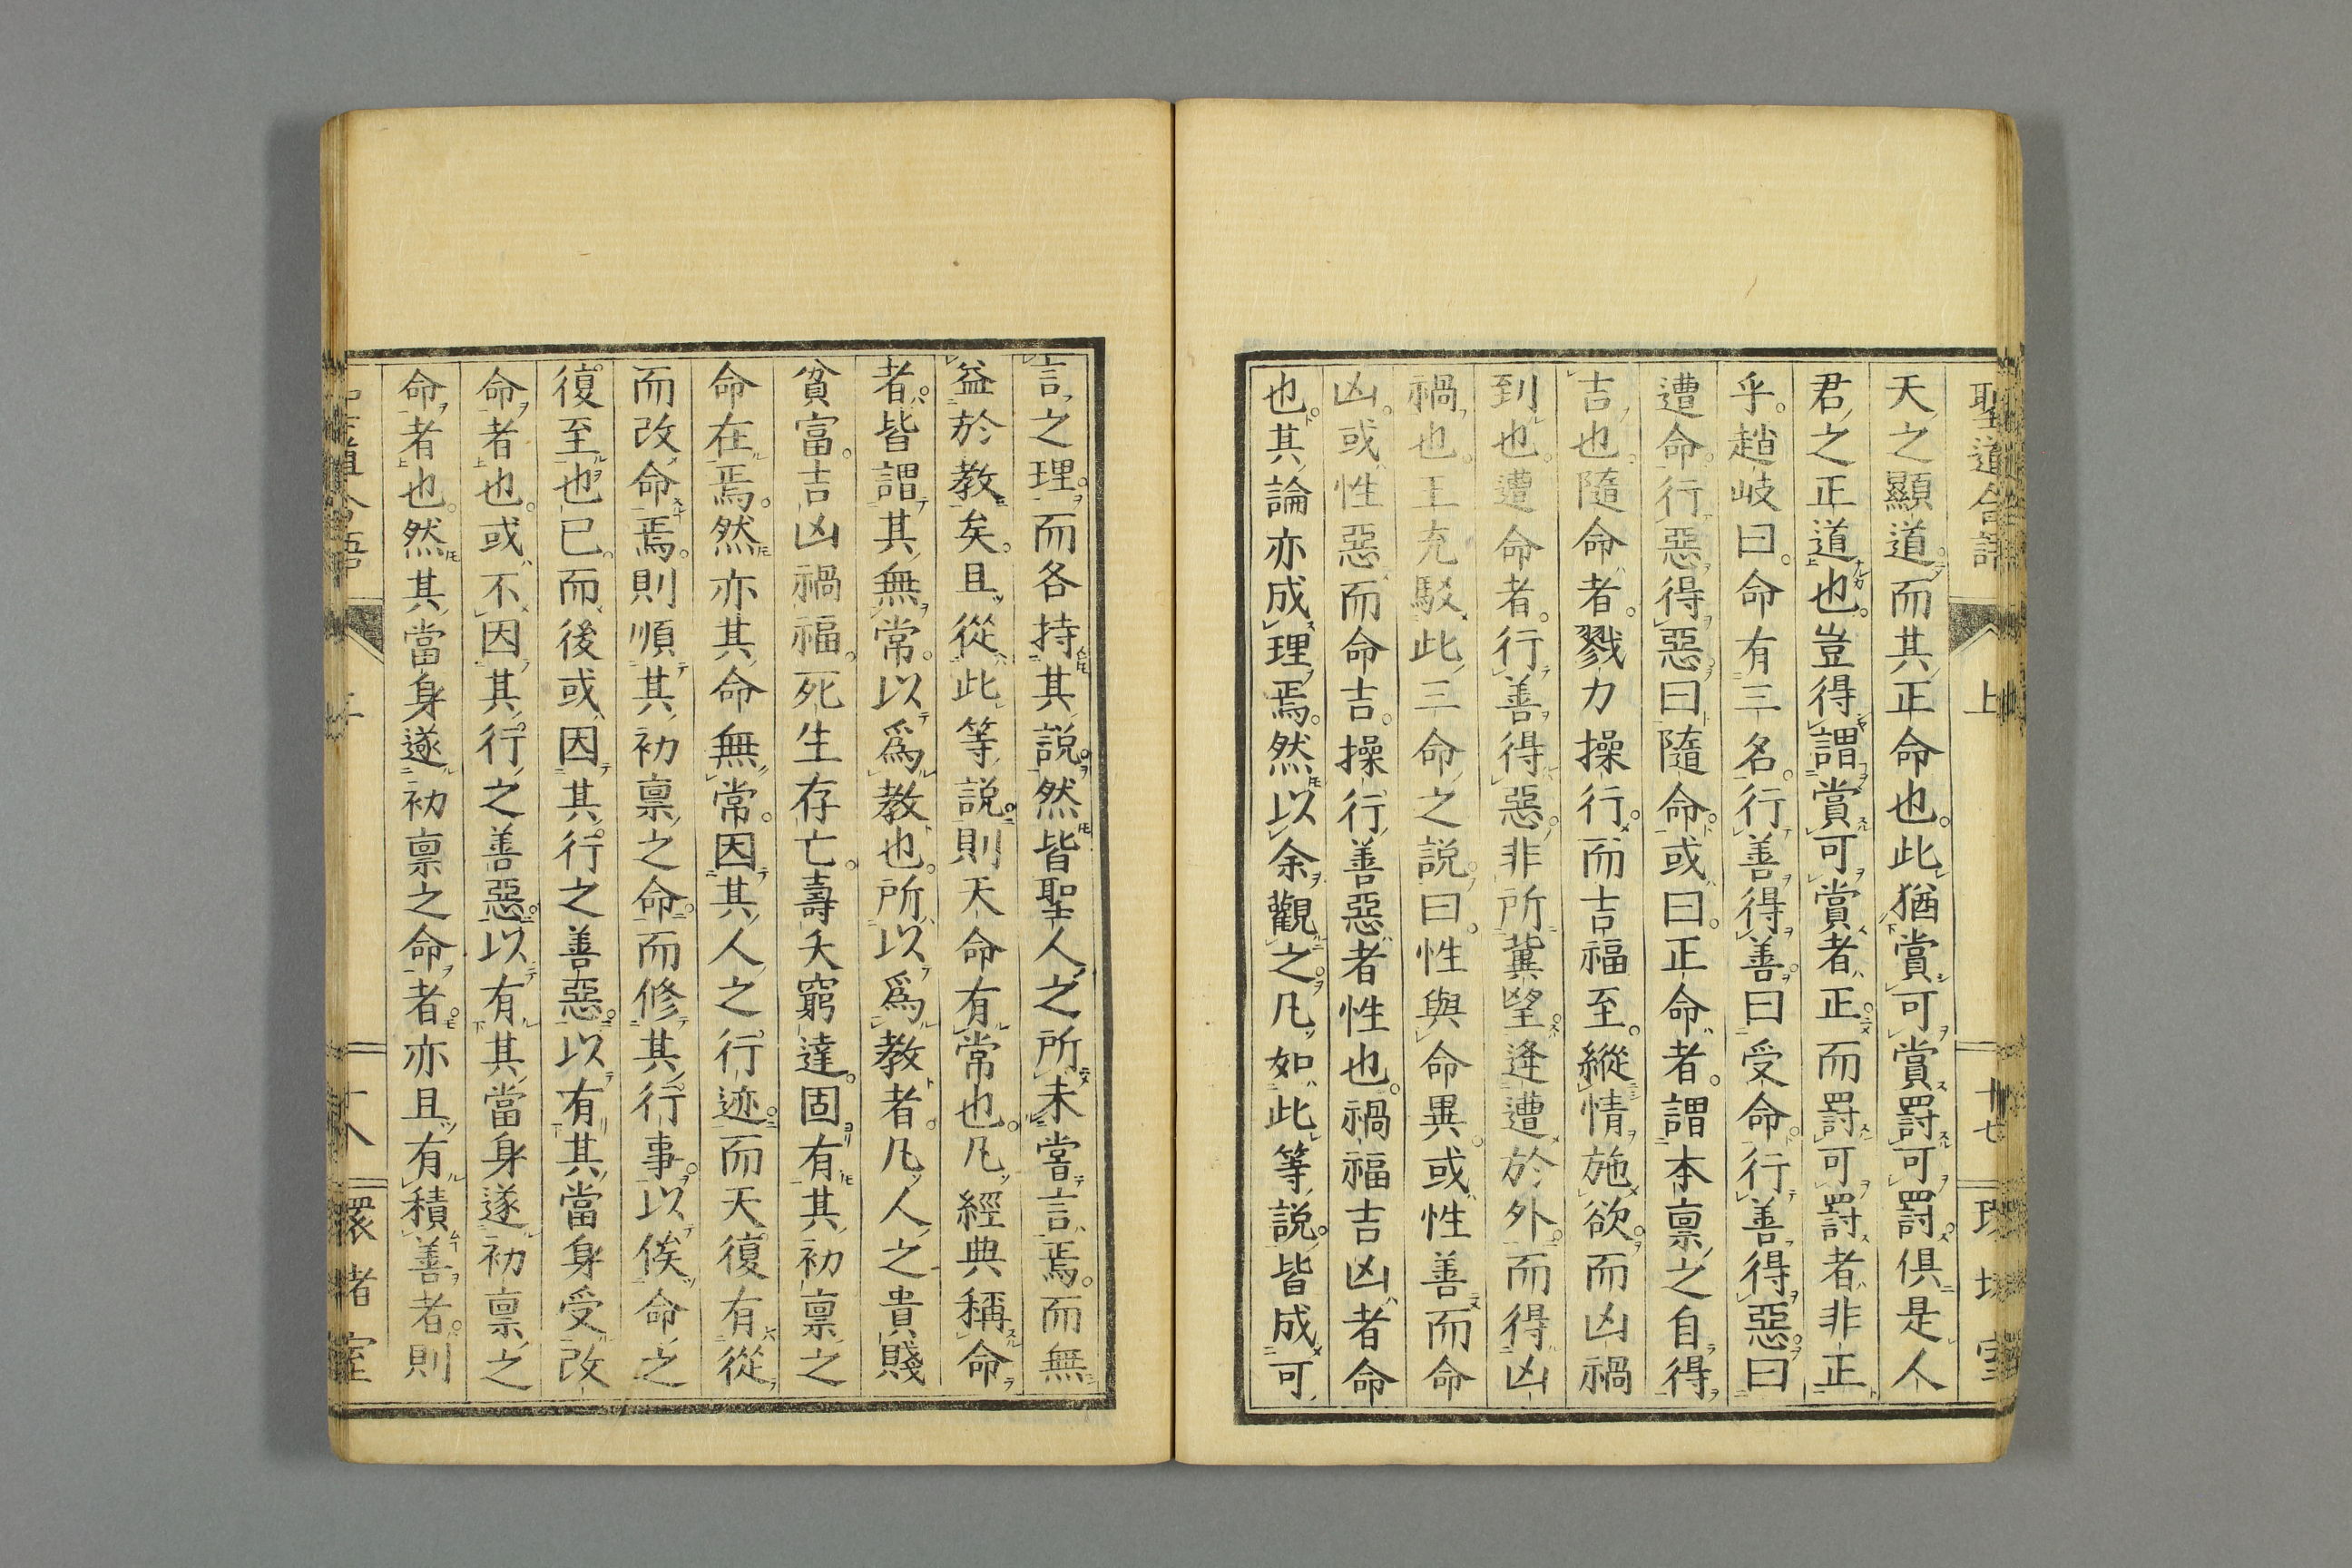 聖道合語 上 十七 環堵室
天之顯道而其正命也。此猶賞可賞罸可罸俱是人
君之正道也。豈得謂賞可賞者正而罸可罸者非正
乎。趙岐曰。命有三名。行善得善曰受命行善得惡曰
遭命。行惡得惡曰隨命。或曰。正命者。謂本禀之自得
吉也。隨命者。戮力操行。而吉福至。縱情施欲。而凶禍
到也。遭命者。行善得惡。非所冀望。逄遭於外。而得凶
禍也。王充駁此三命之説曰。性與命異。或性善而命
凶。或性惡而命吉。操行善惡者性也。禍福吉凶者命
也。其論亦成理焉。然以余觀之。凡如此等説。皆成可
言之理。而各持其説。然皆聖人之所未嘗言焉。而無
益於教矣。且從此等説。則天命有常也。凡經典稱命
者。皆謂其無常。以爲教也。所以爲教者。凡人之貴賤
貧富。吉凶禍福。死生存亡。壽夭窮達。固有其初禀之
命在焉。然亦其命無常。因其人之行迹。而天復有從
而改命焉。則順其初禀之命。而修其行事。以俟命之
復至也已。而後或因其行之善惡。以有其當身受改
命者也。或不因其行之善惡。以有其當身遂初禀之
命者也。然其當身遂初禀之命者。亦且有積善者。則
聖道合語 上 十八 環堵室